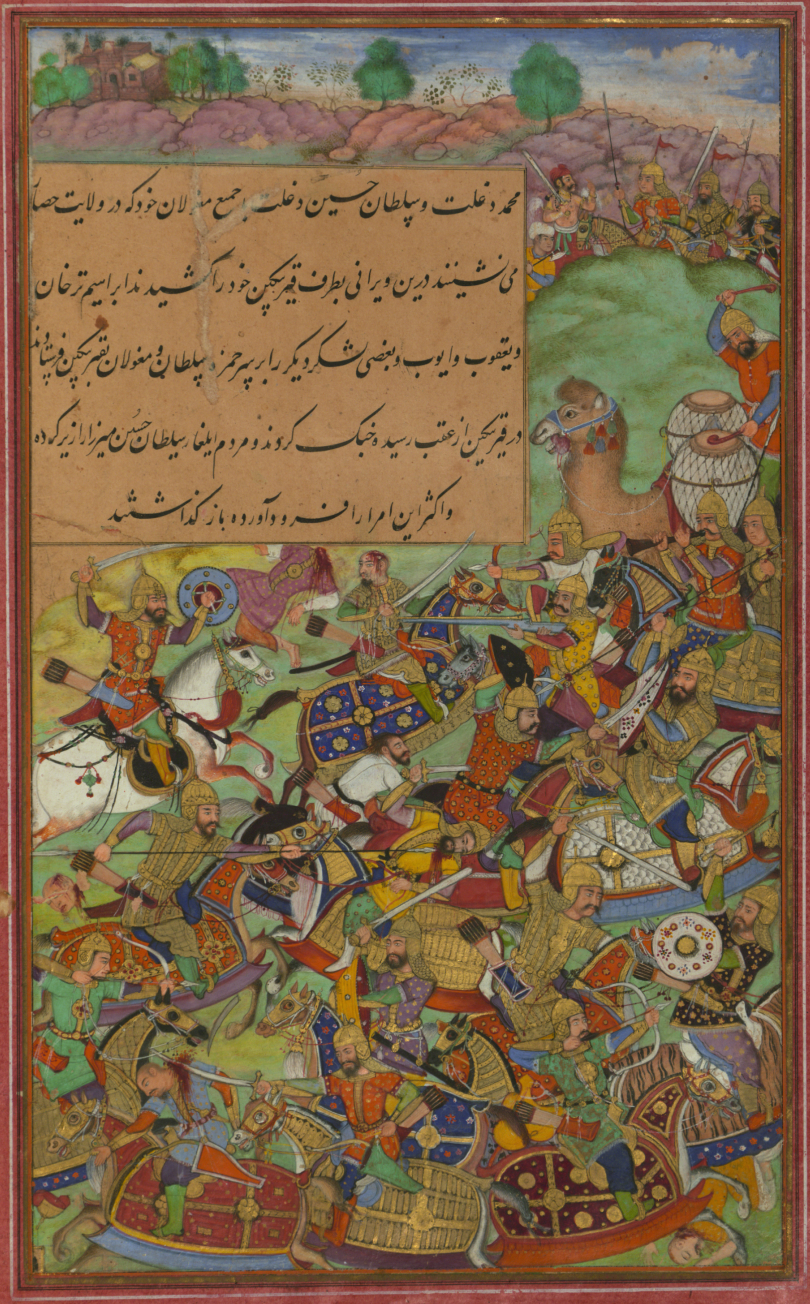 محمد دغلت و سلطان حسین دغلت با جمع مغولان خود که در ولایت حصار
می نشینند درین ویرانی بطرف قبرسکین خود را کشیدند ابراهیم ترخان
و یعقوب و ایوب و بعضی لشکر دیگر را بر سر حمزه سلطان و مغولان بقبرسکین فرستادند
در قبرسکین از عقب رسیده جنگ کردند و مردم ایلغار سلطان حسین میرزا را زیر کرده
و اکثر این امرا را فرود آورده باز گذاشتند